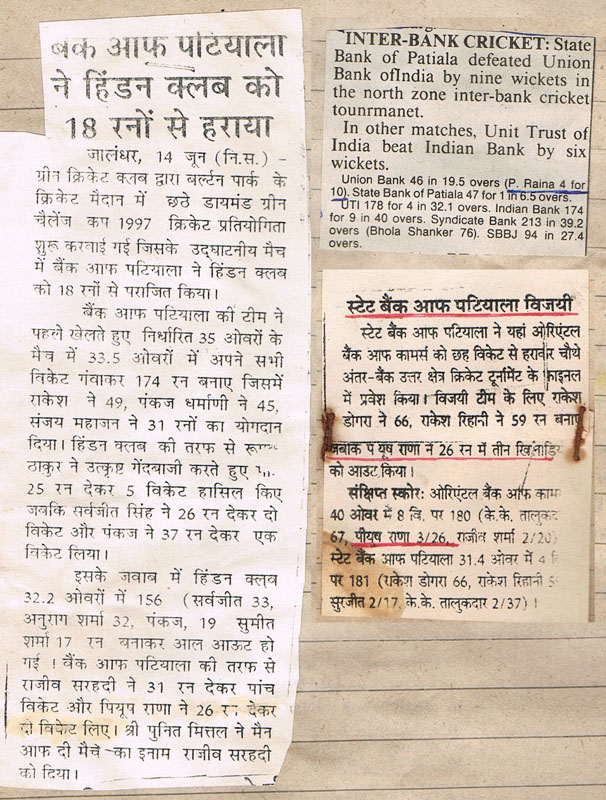 बैंक आफ पटियाला
ने हिंडन क्लब को
18 रनों से हराया
जालंधर, 14 जून (नि.स.) -
ग्रीन क्रिकेट क्लब द्वारा बर्ल्टन पार्क के
क्रिकेट मैदान में छठे डायमंड ग्रीन
चैलेंज कप 1997 क्रिकेट प्रतियोगिता
शुरू करवाई गई जिसके उद्घाटनीय मैच
में बैंक आफ पटियाला ने हिंडन क्लब
को 18 रनों से पराजित किया।
बैंक आफ पटियाला की टीम ने
पहले खेलते हुए निर्धारित 35 ओवरों के
मैच में 33.5 ओवरों में अपने सभी
विकेट गंवाकर 174 रन बनाए जिसमें
राकेश ने 49, पंकज धर्माणी ने 45,
संजय महाजन ने 31 रनों का योगदान
दिया। हिंडन क्लब की तरफ से
ठाकुर ने उत्कृष्ट गेंदबाजी करते हुए
25 रन देकर 5 विकेट हासिल किए
जबकि सर्वजीत सिंह ने 26 रन देकर दो
विकेट और पंकज ने 37 रन देकर एक
विकेट लिया।
इसके जवाब में हिंडन क्लब
32.2 ओवरों में 156 (सर्वजीत 33,
अनुराग शर्मा 32, पंकज, 19 सुमीत
शर्मा 17 रन बनाकर आल आऊट हो
गई ! बैंक आफ पटियाला की तरफ से
राजीव सरहदी ने 31 रन देकर पांच
विकेट और पियूष राणा ने 26 रन देकर
दो विकेट लिए। श्री पुनित मित्तल ने मैन
आफ दी मैच का इनाम राजीव सरहदी
को दिया।
INTER-BANK CRICKET: State
Bank of Patiala defeated Union
Bank ofIndia by nine wickets in
the north zone inter-bank cricket
tounrmanet.
In other matches, Unit Trust of
India beat Indian Bank by six
wickets.
Union Bank 46 in 19.5 overs (P. Raina 4 for
10). State Bank of Patiala 47 for 1 in 6.5 overs.
UTI 178 for 4 in 32.1 overs. Indian Bank 174
for 9 in 40 overs. Syndicate Bank 213 in 39.2
overs (Bhola Shanker 76). SBBJ 94 in 27.4
overs.
स्टेट बैंक आफ पटियाला विजयी
स्टेट बैंक आफ पटियाला ने यहां ओरिएंटल
बैंक आफ कामर्स को छह विकेट से हराकर चौथे
अंतर-बैंक उत्तर क्षेत्र क्रिकेट टूर्नामेंट के फाइनल
में प्रवेश किया। विजयी टीम के लिए राकेश
डोगरा ने 66, राकेश रिहानी ने 59 रन बनाए
राणा ने 26 रन में तीन
को आउट किया।
संक्षिप्त स्कोर: ओरिएंटल बैंक ऑफ
40 ओवर में 8 वि. पर 180 (के.के.
67, पीयुष राणा 3/26, राजीत शर्मा 2/20)
स्टेट बैंक आफ पटियाला 31.4 ओवर में 4
पर 181 (राकेश डोगरा 66, राकेश रिहानी
सुरजीत 2/17, के.के. तालुकदार 2/37)।